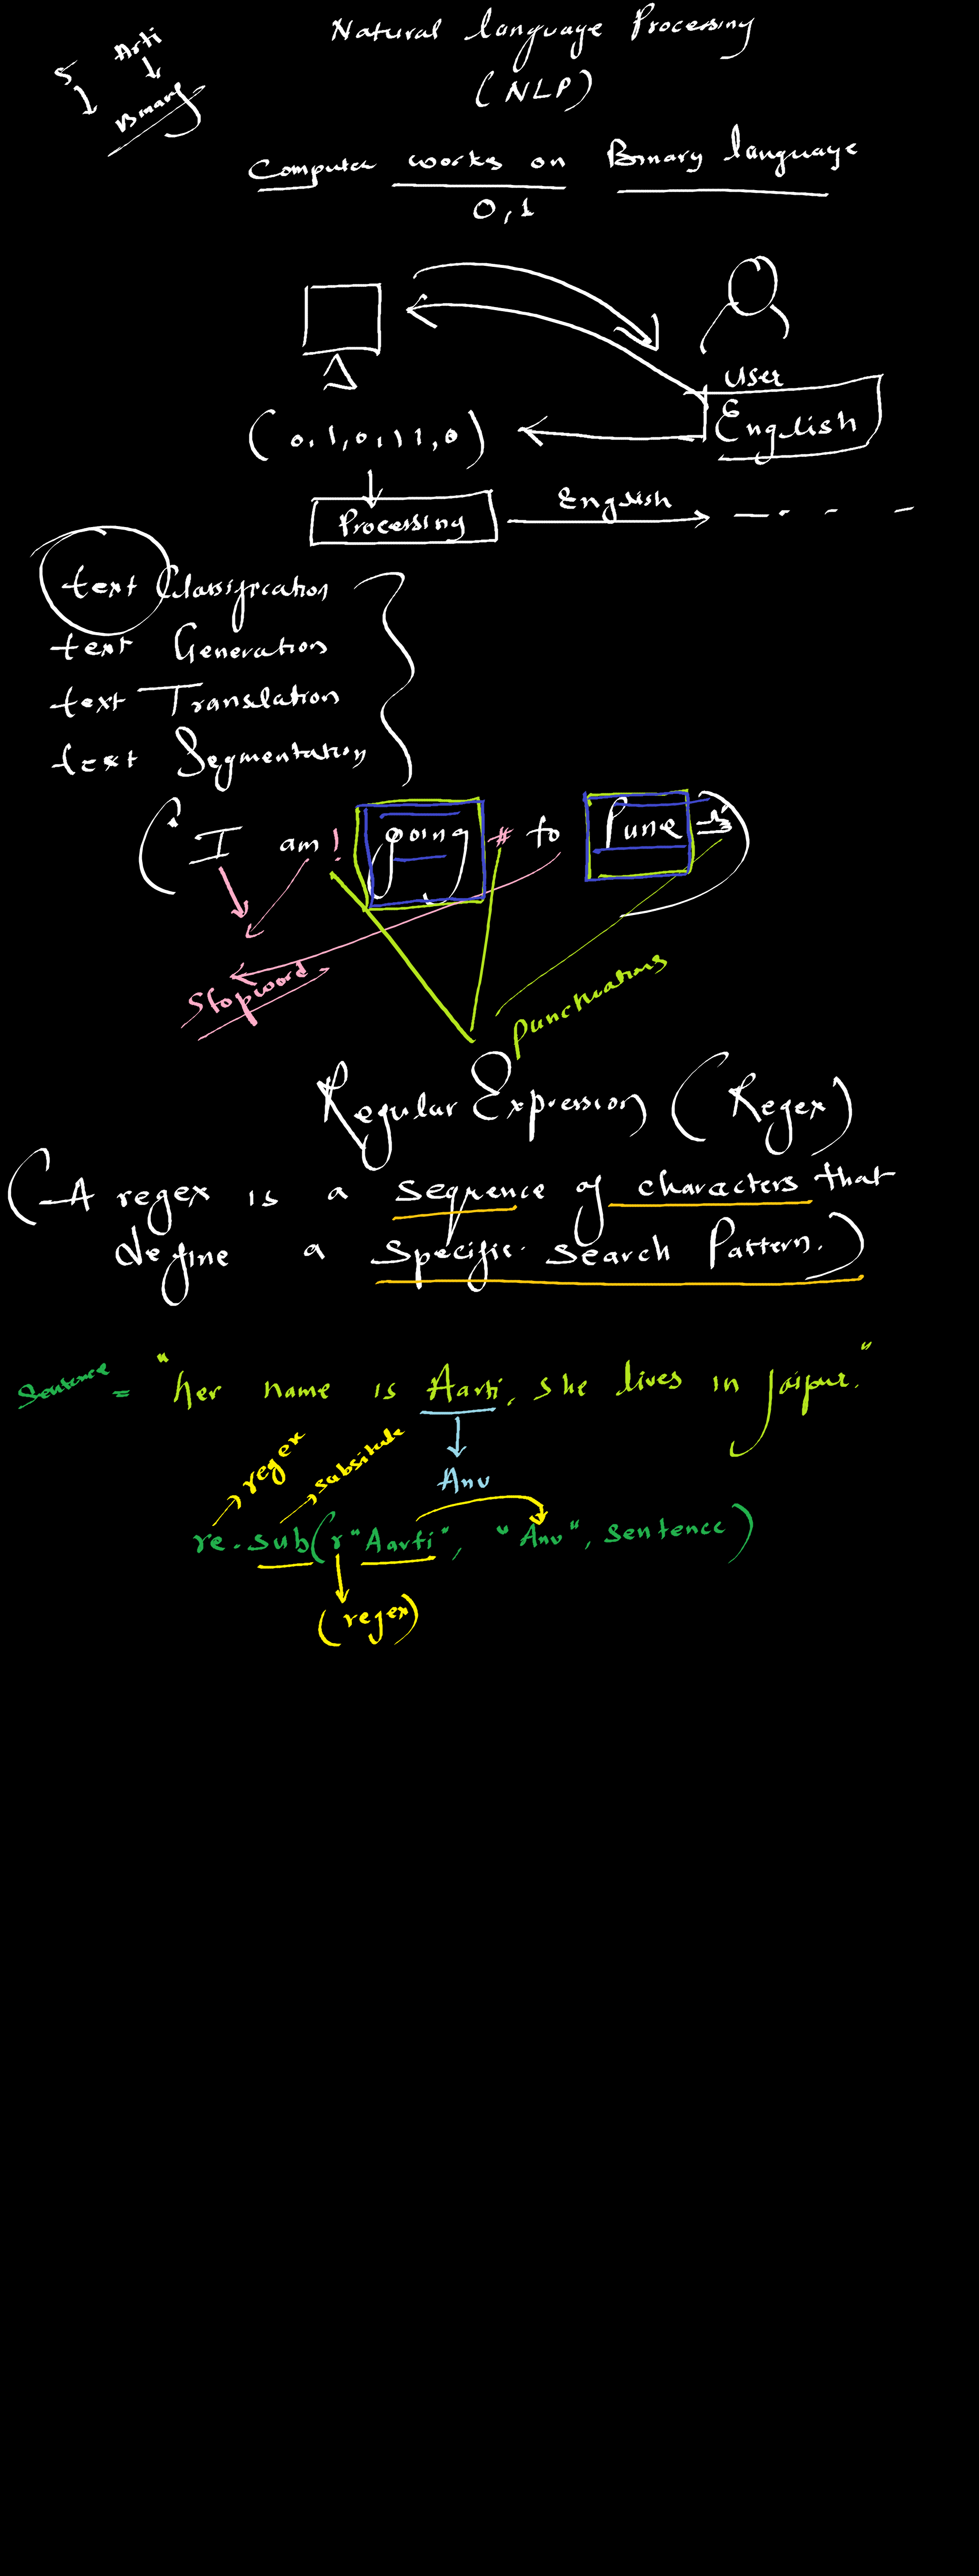 Natural language Processing
(NLP)
5 Arti
Binary
Computer works on Binary language
0,1
User
English
(0,1,0,1,1,0)
Processing English
text Classification
text Generation
text Translation
text Segmentation
(" I am ! going # to Pune
Stopword
Punctuations
Regular Expression (Regex)
(A regex is a sequence of characters that
define a specific search Pattern.)
Sentence = "her name is Aarti, she lives in jaipur."
regex subsitute
Anu
re.sub(r"Aarti", "Anu", sentence)
(regex)